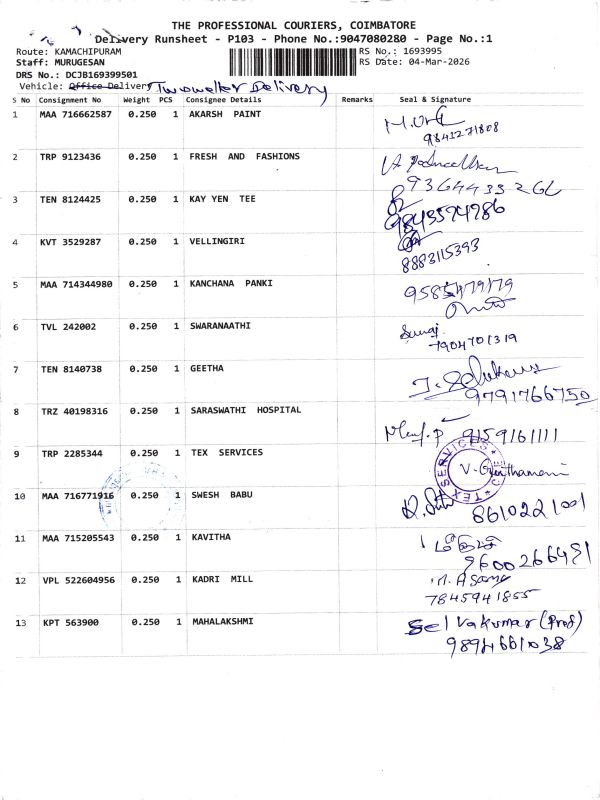 THE PROFESSIONAL COURIERS, COIMBATORE
Delivery Runsheet - P103 - Phone No.:9047080280 - Page No.:1
Route: KAMACHIPURAM RS No.: 1693995
Staff: MURUGESAN RS Date: 04-Mar-2026
DRS No.: DCJB169399501
Vehicle: Office Delivery Twowheeler Delivery
S No Consignment No Weight PCS Consignee Details Remarks Seal & Signature
1 MAA 716662587 0.250 1 AKARSH PAINT
9843271808
2 TRP 9123436 0.250 1 FRESH AND FASHIONS
3 TEN 8124425 0.250 1 KAY YEN TEE
9843594986
4 KVT 3529287 0.250 1 VELLINGIRI
8883115393
5 MAA 714344980 0.250 1 KANCHANA PANKI
6 TVL 242002 0.250 1 SWARANAATHI
7904701319
7 TEN 8140738 0.250 1 GEETHA
9791766750
8 TRZ 40198316 0.250 1 SARASWATHI HOSPITAL
9159161111
9 TRP 2285344 0.250 1 TEX SERVICES
TEX SERVICES
10 MAA 716771916 0.250 1 SWESH BABU
8610221001
11 MAA 715205543 0.250 1 KAVITHA
9600266491
12 VPL 522604956 0.250 1 KADRI MILL
7845941855
13 KPT 563900 0.250 1 MAHALAKSHMI Selvakumar (Prof)
9894661038